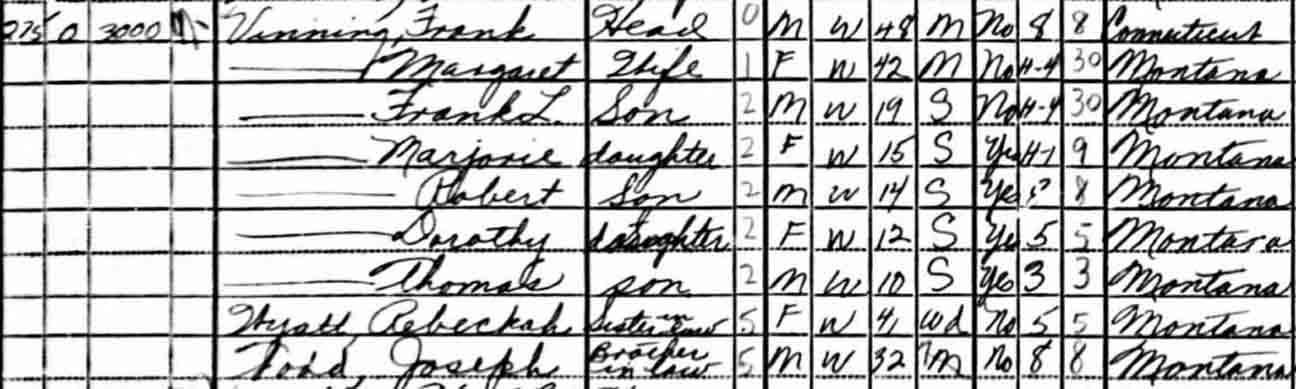 275 0 3000 Vinning, Frank Head 0 M W 48 M No 8 8 Connecticut
Margaret Wife 1 F W 42 M No H-4 30 Montana
Frank L. Son 2 M W 19 S No H-4 30 Montana
Marjorie daughter 2 F W 15 S Yes H-1 9 Montana
Robert Son 2 M W 14 S Yes 8 Montana
Dorothy daughter 2 F W 12 S Yes 5 5 Montana
Thomas son 2 M W 10 S Yes 3 3 Montana
Wyatt, Rebeckah Sister in law 5 F W 41 Wd No 5 5 Montana
Todd, Joseph Brother in law 5 M W 32 M No 8 8 Montana